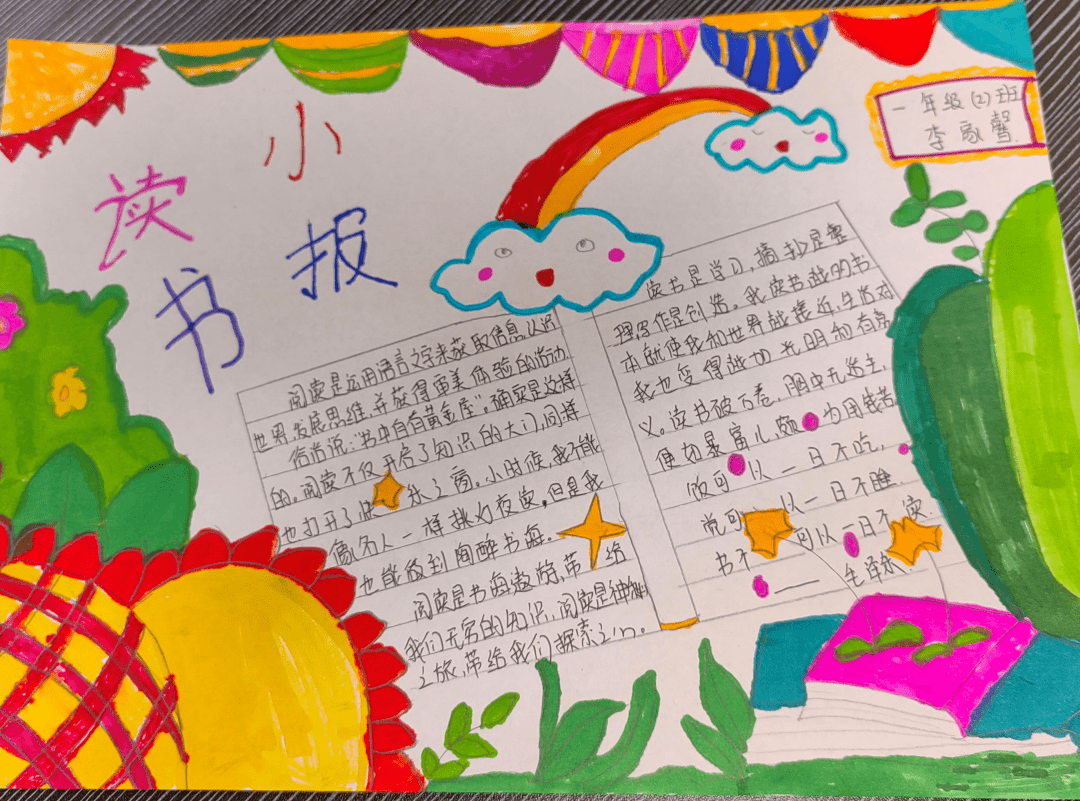 小
读
书
报
一年级(2)班
李家馨
阅读是运用语言文字来获取信息,认识
世界,发展思维,并获得审美体验的活动
俗语说:“书中自有黄金屋”。确实是这样
的。阅读不仅开启了知识的大门,同样
也打开了快乐之窗。小时候,我不能
像家人一样挑灯夜读,但是我
也能做到陶醉书海。
阅读是书海遨游,带给
我们无穷的知识,阅读是神秘
之旅,带给我们探索之门。
读书是学习,摘抄是整
理,写作是创造。我读书越的书
本就使我和世界越接近,生活对
我也变得越加光明和有意
义。读书破万卷,胸中无适主,
便如暴富儿,颇为用钱苦
饭可以一日不吃,
觉可以一日不睡
书不可以一日不读
——毛泽东